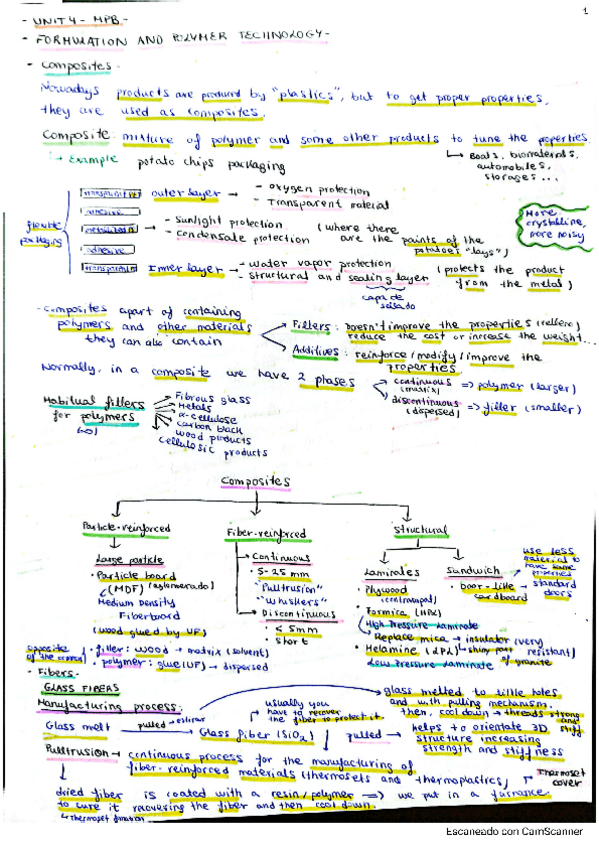 1
- UNIT 4 - MPB -
- FORMULATION AND POLYMER TECHNOLOGY -
- Composites -
Nowadays products are produced by "plastics", but to get proper properties,
they are used as composites.
Composite: mixture of polymer and some other products to tune the properties.
Example potato chips packaging
Boats, biomaterials,
automobiles,
storages...
flexible
packaging
outer layer → - oxygen protection
- Transparent material
adhesive
→ - Sunlight protection
- Condensate protection
(where there
are the paints of the
potatoes "lays")
More
crystalline,
more noisy
adhesive
Inner layer → - water vapor protection
- Structural and sealing layer
(protects the product
from the metal)
capa de
selado
- Composites apart of containing
polymers and other materials
they can also contain
Fillers: doesn't improve the properties (relleno)
reduce the cost or increase the weight...
Additives: reinforce/modify/improve the
properties
Normally, in a composite we have 2 phases
continuous => polymer (larger)
(matrix)
discontinuous => filler (smaller)
(dispersed)
Habitual fillers
for polymers
Fibrous glass
Metals
α-cellulose
Carbon black
wood products
Cellulosic products
Composites
Particle-reinforced
Fiber-reinforced
Structural
Large particle
· Particle board
(MDF) (aglomerado)
Medium Density
Fiberboard
(wood glued by UF)
· filler: wood → matrix (solvent)
· polymer: glue (UF) → dispersed
opposite
of the normal
· Continuous
· 5-25 mm
"Pulltrusion"
"Whiskers"
· Discontinuous
· < 5mm
· Short
Laminates
· Plywood
(contrachapat)
· Formica (HPL)
High Pressure Laminate
Replace mica → insulator (very
resistant)
· Melamine (LPL)
of granite
Low Pressure Laminate
Sandwich
· Door-like
cardboard
use less
material to
have same
properties
standard
doors
- Fibers -
GLASS FIBERS
Manufacturing process:
Glass melt
pulled → estirar
Glass fiber (SiO₂)
usually you
have to recover
the fiber to protect it.
pulled
glass melted to little holes
and with pulling mechanism.
then, cool down → threads strong
and stiff
helps to orientate 3D
structure increasing
strength and stiffness
Pulltrusion → continuous process for the manufacturing of
fiber-reinforced materials (thermosets and thermoplastics)
Thermoset
cover
dried fiber is coated with a resin/polymer => we put in a furnance
to cure it recovering the fiber and then cool down.
Thermoset function
Escaneado con CamScanner